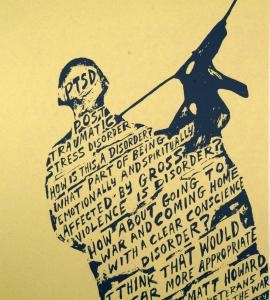 PTSD
POST
TRAUMATIC
STRESS DISORDER
HOW IS THIS A DISORDER?
WHAT PART OF BEING
EMOTIONALLY AND SPIRITUALLY
AFFECTED BY GROSS
VIOLENCE IS DISORDER?
HOW ABOUT GOING TO
WAR AND COMING HOME
WITH A CLEAR CONSCIENCE
DISORDER?
I THINK THAT WOULD
FAR MORE APPROPRIATE
MATT HOWARD
VETERANS
THE WAR